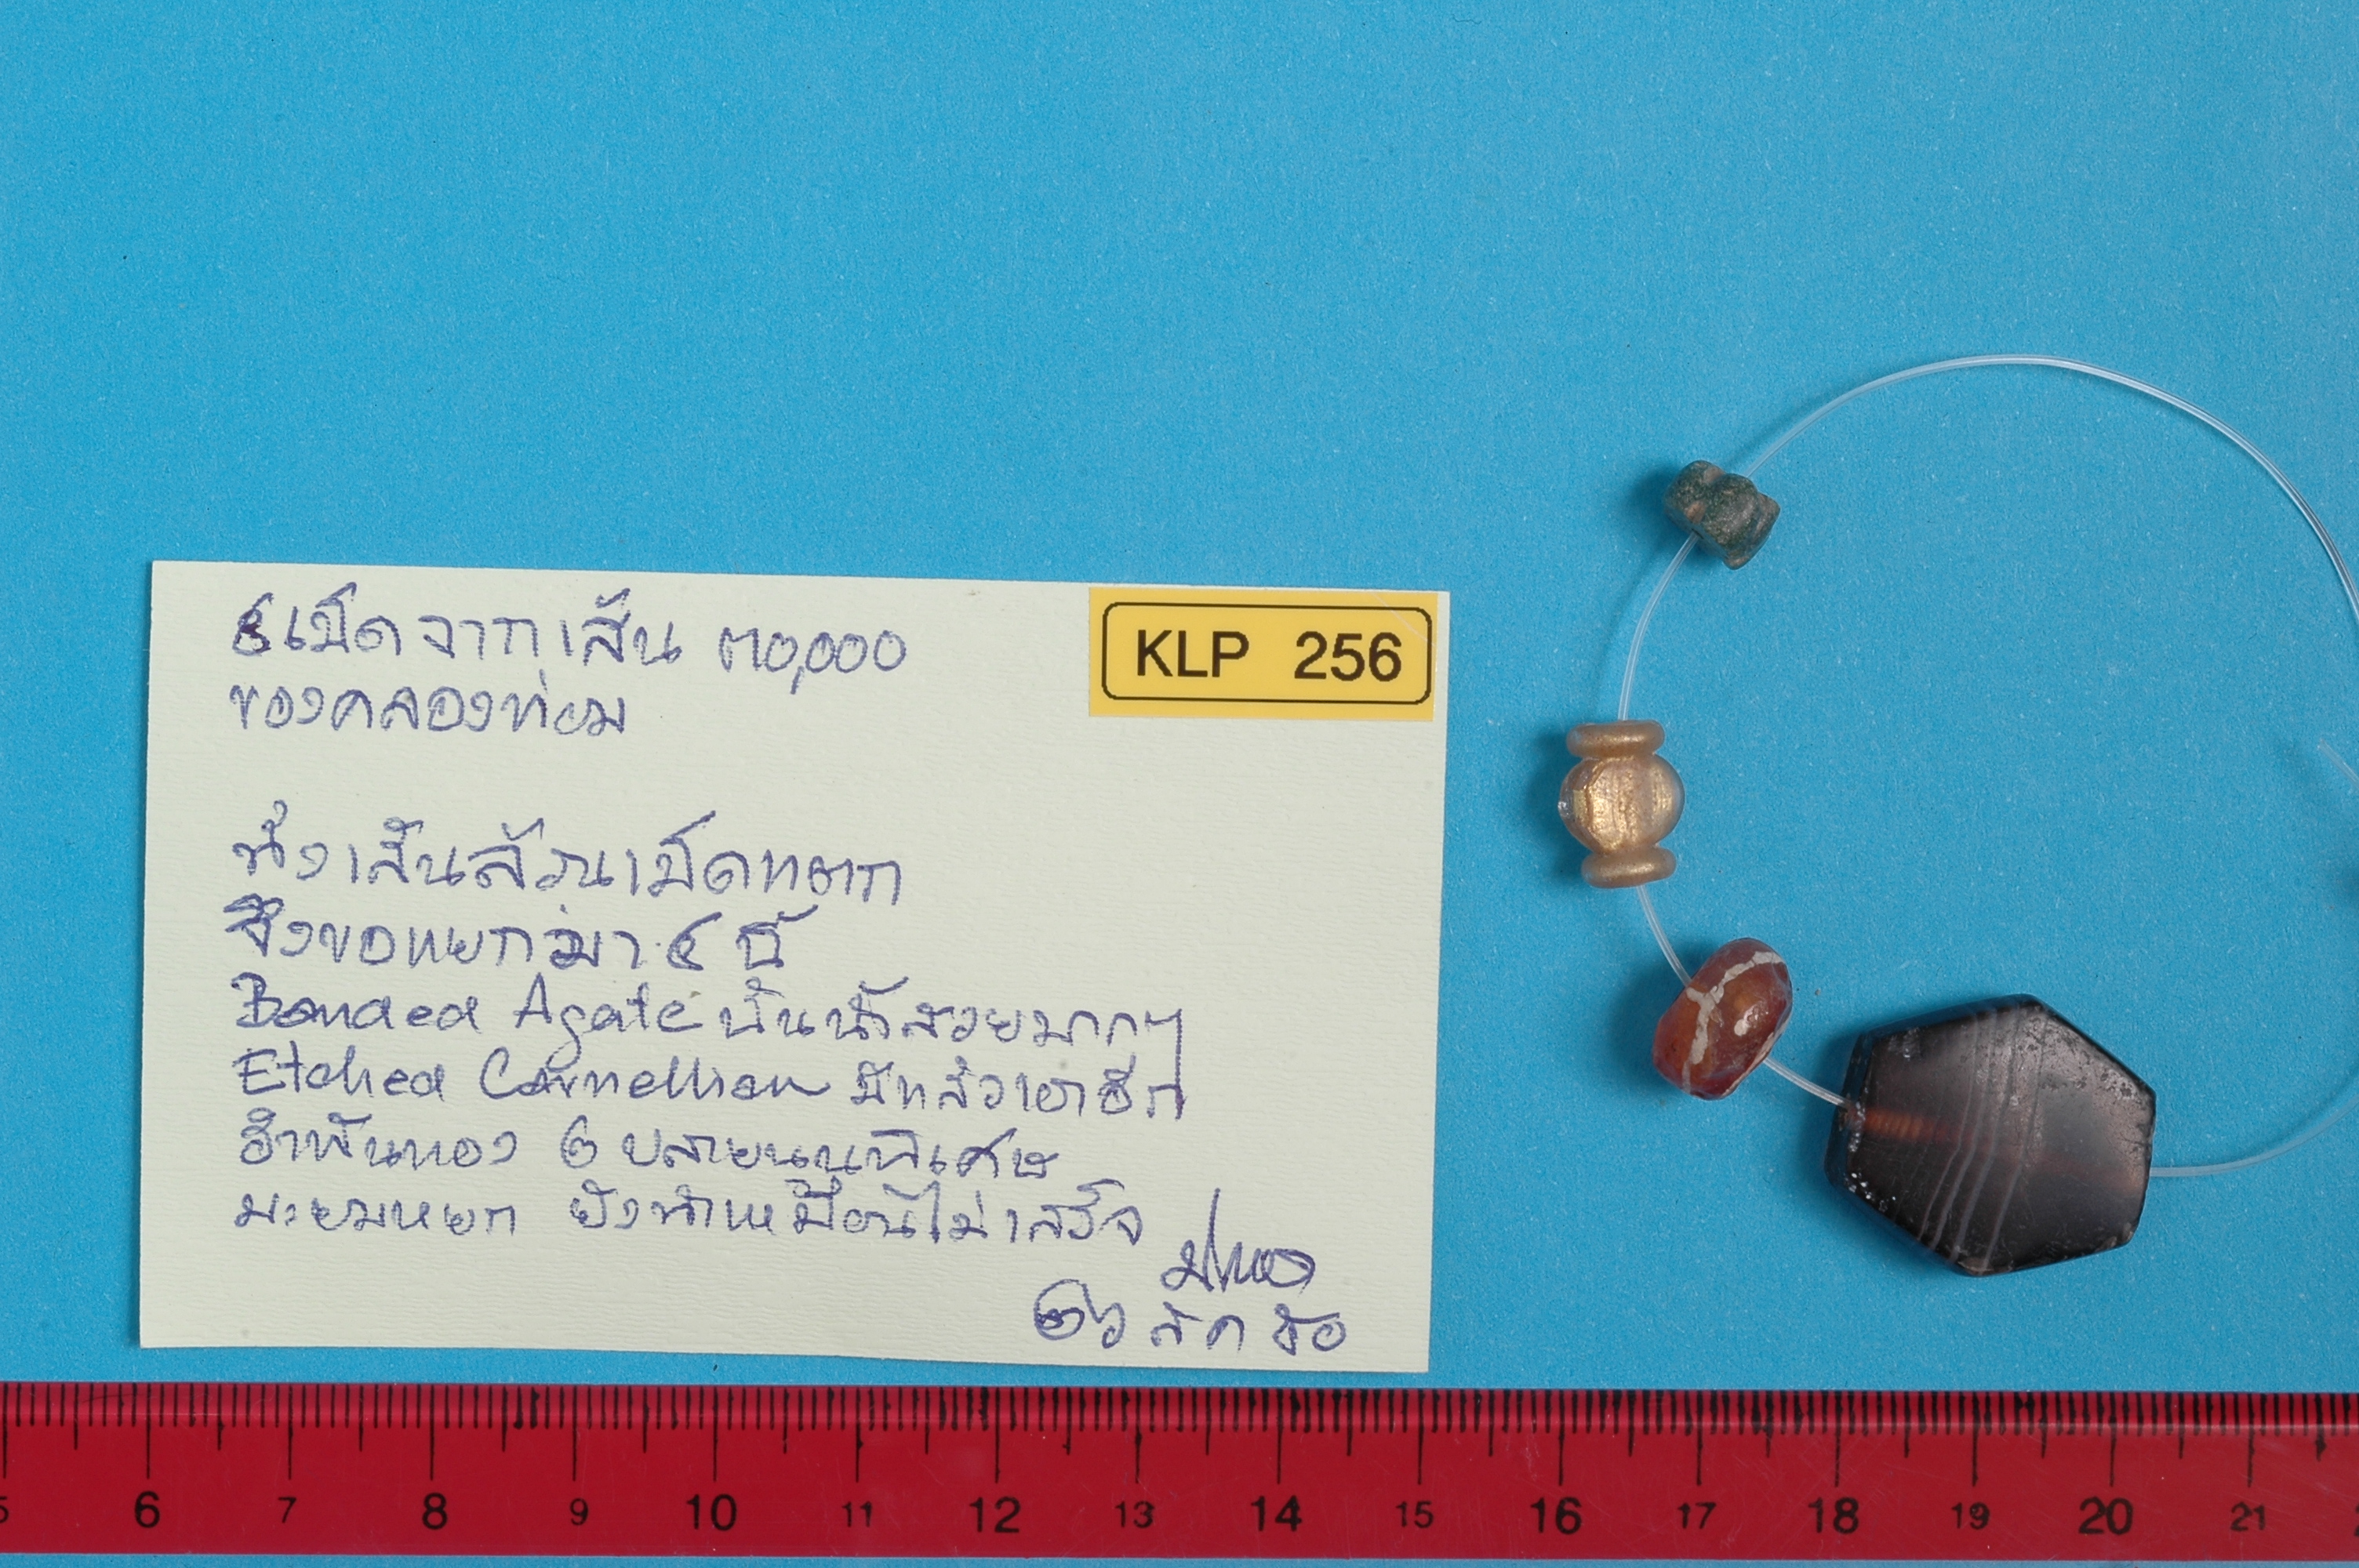 ๕เม็ด จากเส้น ๓๐,๐๐๐
ของคลองท่อม
KLP 256
ทั้งเส้นล้วนเม็ดแตก
จึงขอแยกมา ๔ นี้
Banded Agate นั้นน้ำสวยมากๆ
Etched Carnellian มีแล้วเอาอีก
อำพันทอง ๒ ปลายนูนพิเศษ
มะยมหยก ยังทำเหมือนไม่เสร็จ
5 6 7 8 9 10 11 12 13 14 15 16 17 18 19 20 21